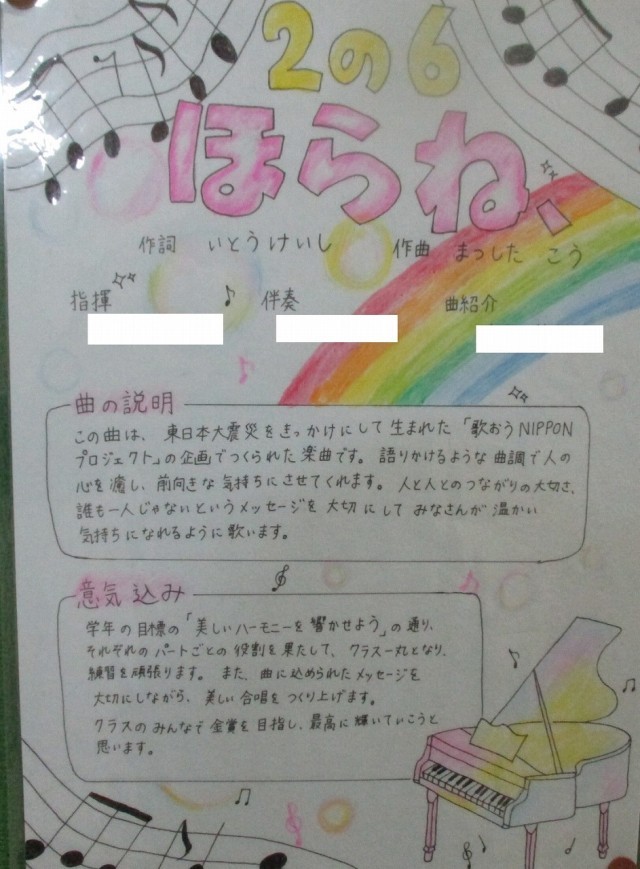 2の6
ほらね、
作詞 いとうけいし 作曲 まつした こう
指揮 伴奏 曲紹介
曲の説明
この曲は、東日本大震災をきっかけにして生まれた「歌おうNIPPON
プロジェクト」の企画でつくられた楽曲です。語りかけるような曲調で人の
心を癒し、前向きな気持ちにさせてくれます。人と人とのつながりの大切さ、
誰も一人じゃないというメッセージを大切にしてみなさんが温かい
気持ちになれるように歌います。
意気込み
学年の目標の「美しいハーモニーを響かせよう」の通り、
それぞれのパートごとの役割を果たして、クラス一丸となり、
練習を頑張ります。また、曲に込められたメッセージを
大切にしながら、美しい合唱をつくり上げます。
クラスのみんなで金賞を目指し、最高に輝いていこうと
思います。